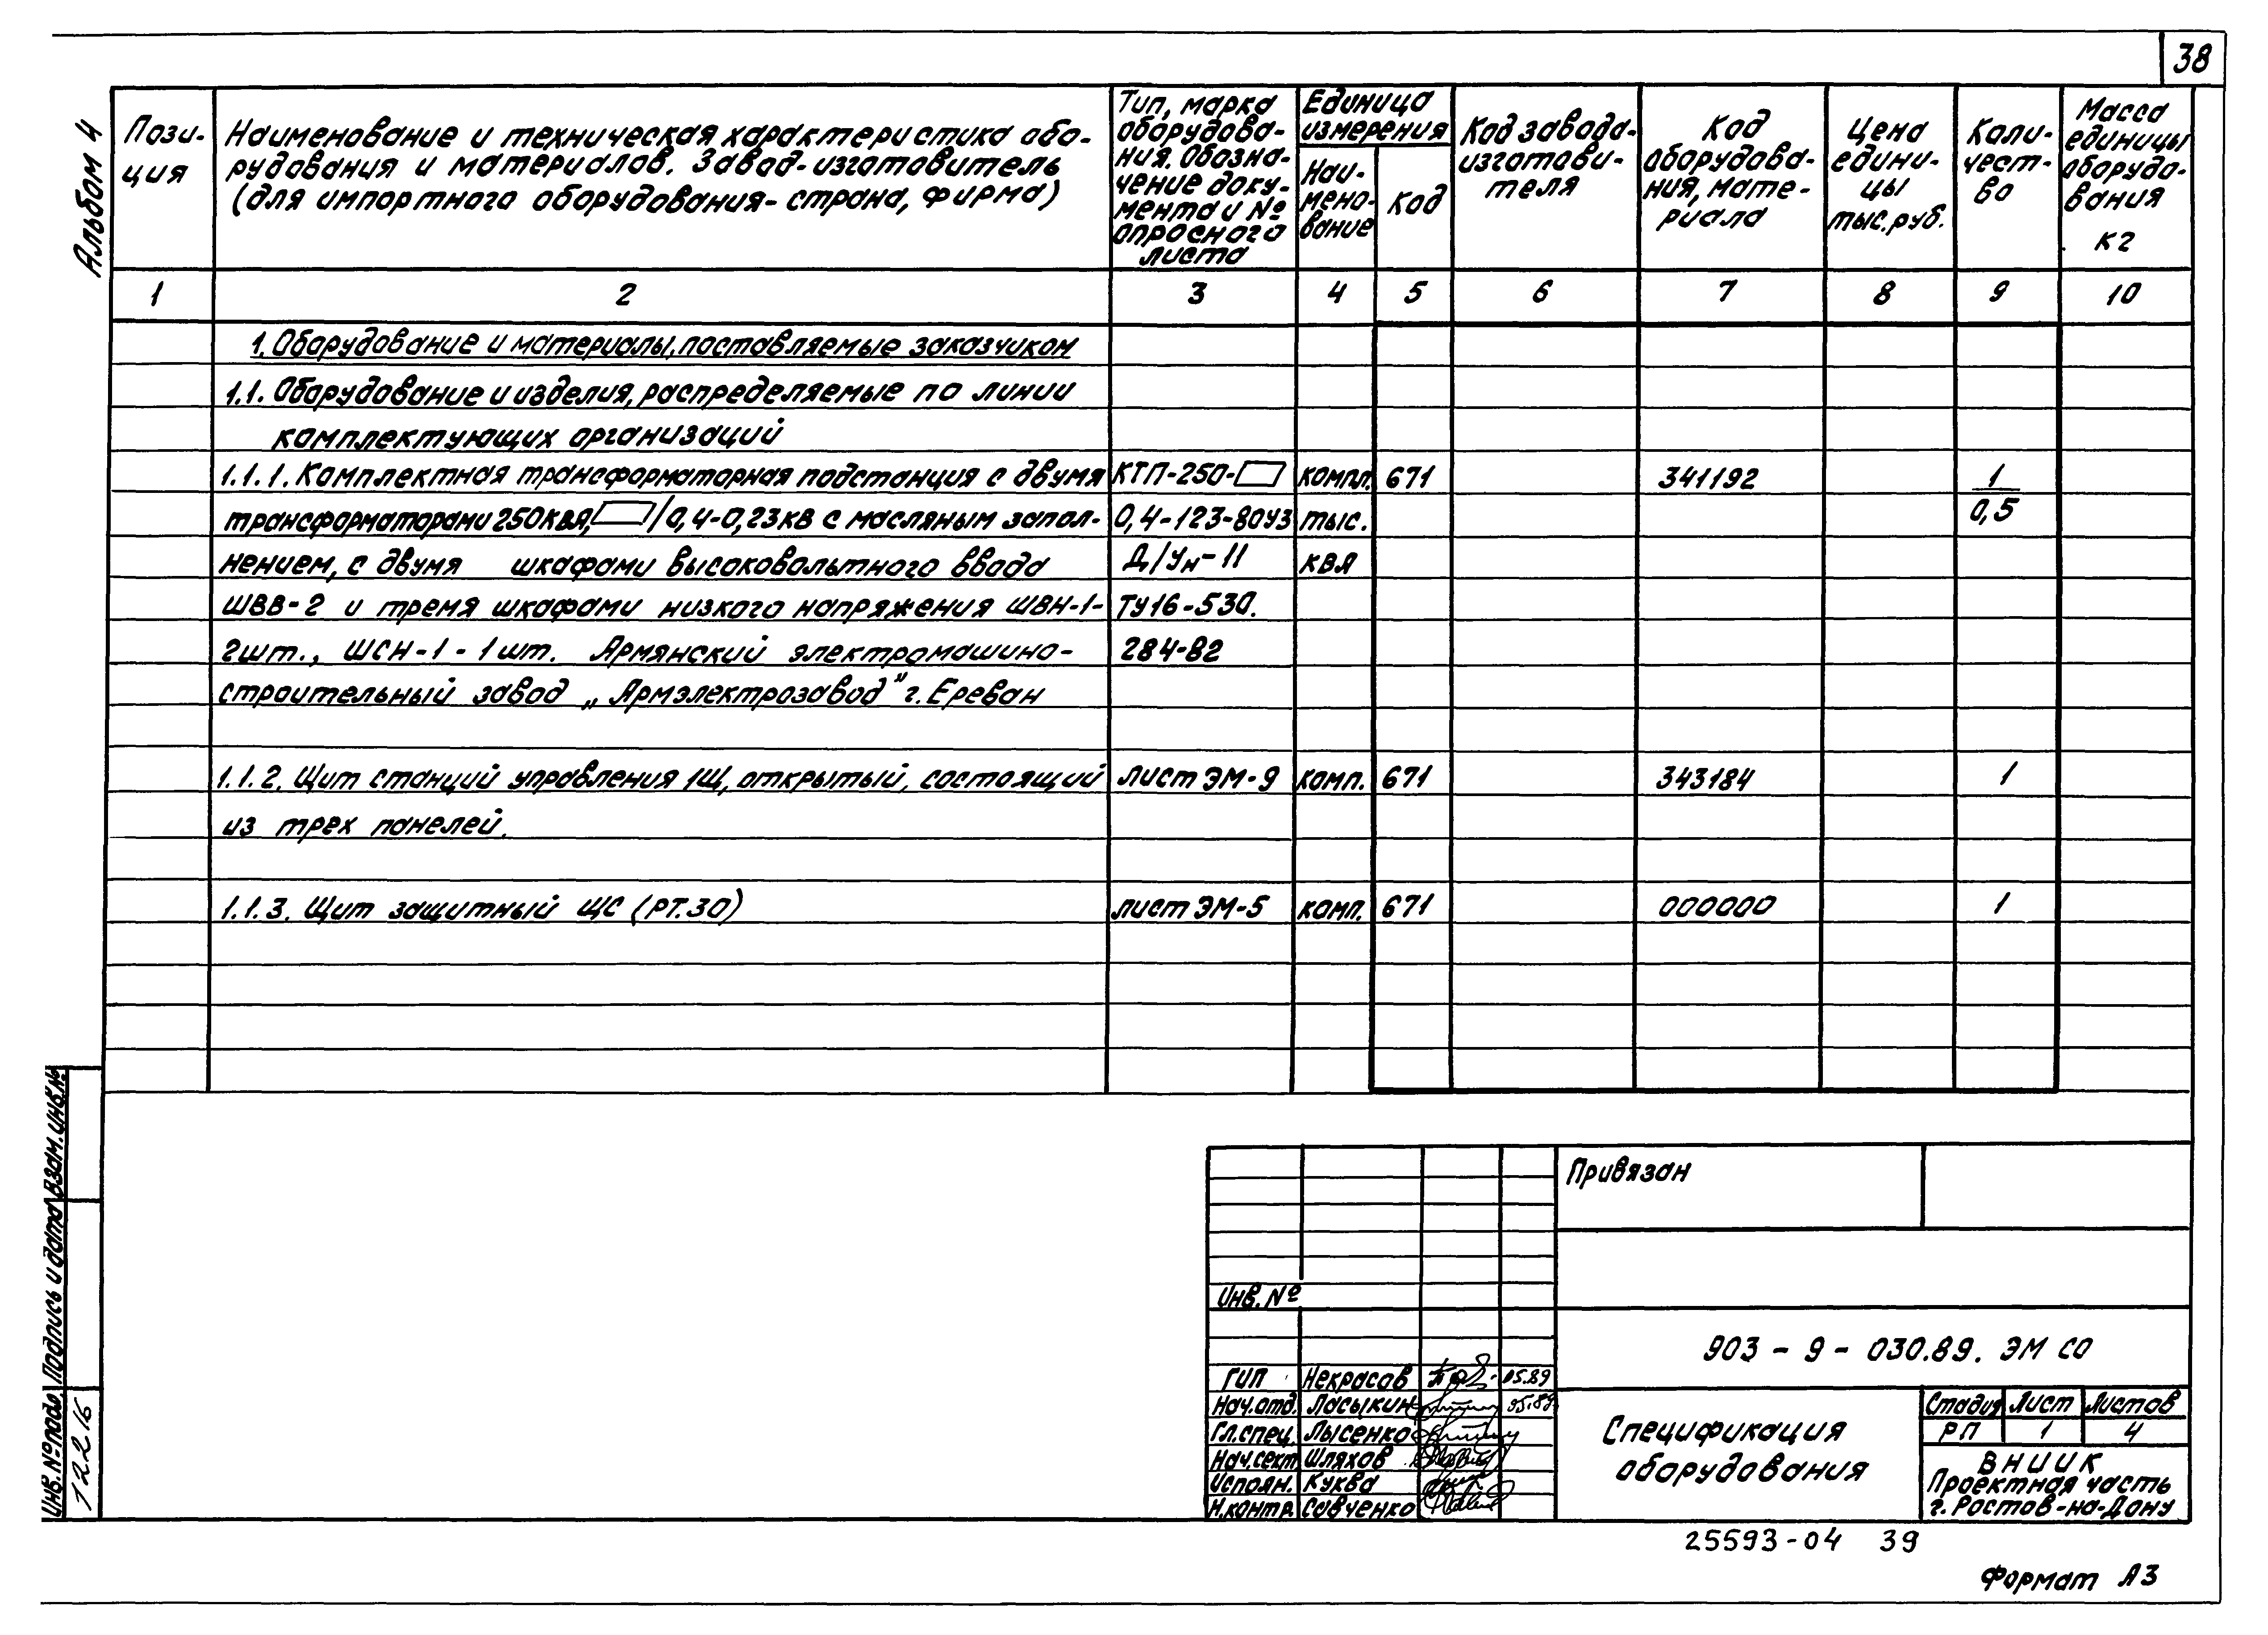 38
Альбом 4
Пози-
ция
Наименование и техническая характеристика обо-
рудования и материалов. Завод-изготовитель
(для импортного оборудования- страна, фирма)
Тип, марка
оборудова-
ния. Обозна-
чение доку-
мента и №
опросного
листа
Единица
измерения
Наи-
мено-
вание
Код
Код завода-
изготови-
теля
Код
оборудова-
ния, мате-
риала
Цена
едини-
цы
тыс.руб.
Коли-
чест-
во
Масса
единицы
оборудо-
вания
кг
1 2 3 4 5 6 7 8 9 10
1. Оборудование и материалы, поставляемые заказчиком
1.1. Оборудование и изделия, распределяемые по линии
комплектующих организаций
1.1.1. Комплектная трансформаторная подстанция с двумя КТП-250- компл. 671 341192 1
трансформаторами 250кВА, /0,4-0,23кВ с масляным запол- 0,4-123-80У3 тыс. 0,5
нением, с двумя шкафами высоковольтного ввода Д/Ун-11 кВА
ШВВ-2 и тремя шкафами низкого напряжения ШВН-1- ТУ16-530.
2шт., ШСН-1-1шт. Армянский электромашино- 284-82
строительный завод „Армэлектрозавод" г. Ереван
1.1.2. Щит станций управления 1Щ, открытый, состоящий лист ЭМ-9 комп. 671 343184 1
из трех панелей.
1.1.3. Щит защитный ЩС (РТ.30) лист ЭМ-5 комп. 671 000000 1
Взам.инв.№
Подпись и дата
Инв.№подл.
12216
Привязан
Инв.№
903-9-030.89. ЭМ СО
ГИП Некрасов 05.89
Нач.отд. Ласыкин 05.89
Гл.спец. Лысенко
Нач.сект Шляхов
Исполн. Куква
Н.контр. Савченко
Спецификация
оборудования
Стадия Лист Листов
РП 1 4
ВНИИК
Проектная часть
г. Ростов-на-Дону
25593-04 39
Формат А3